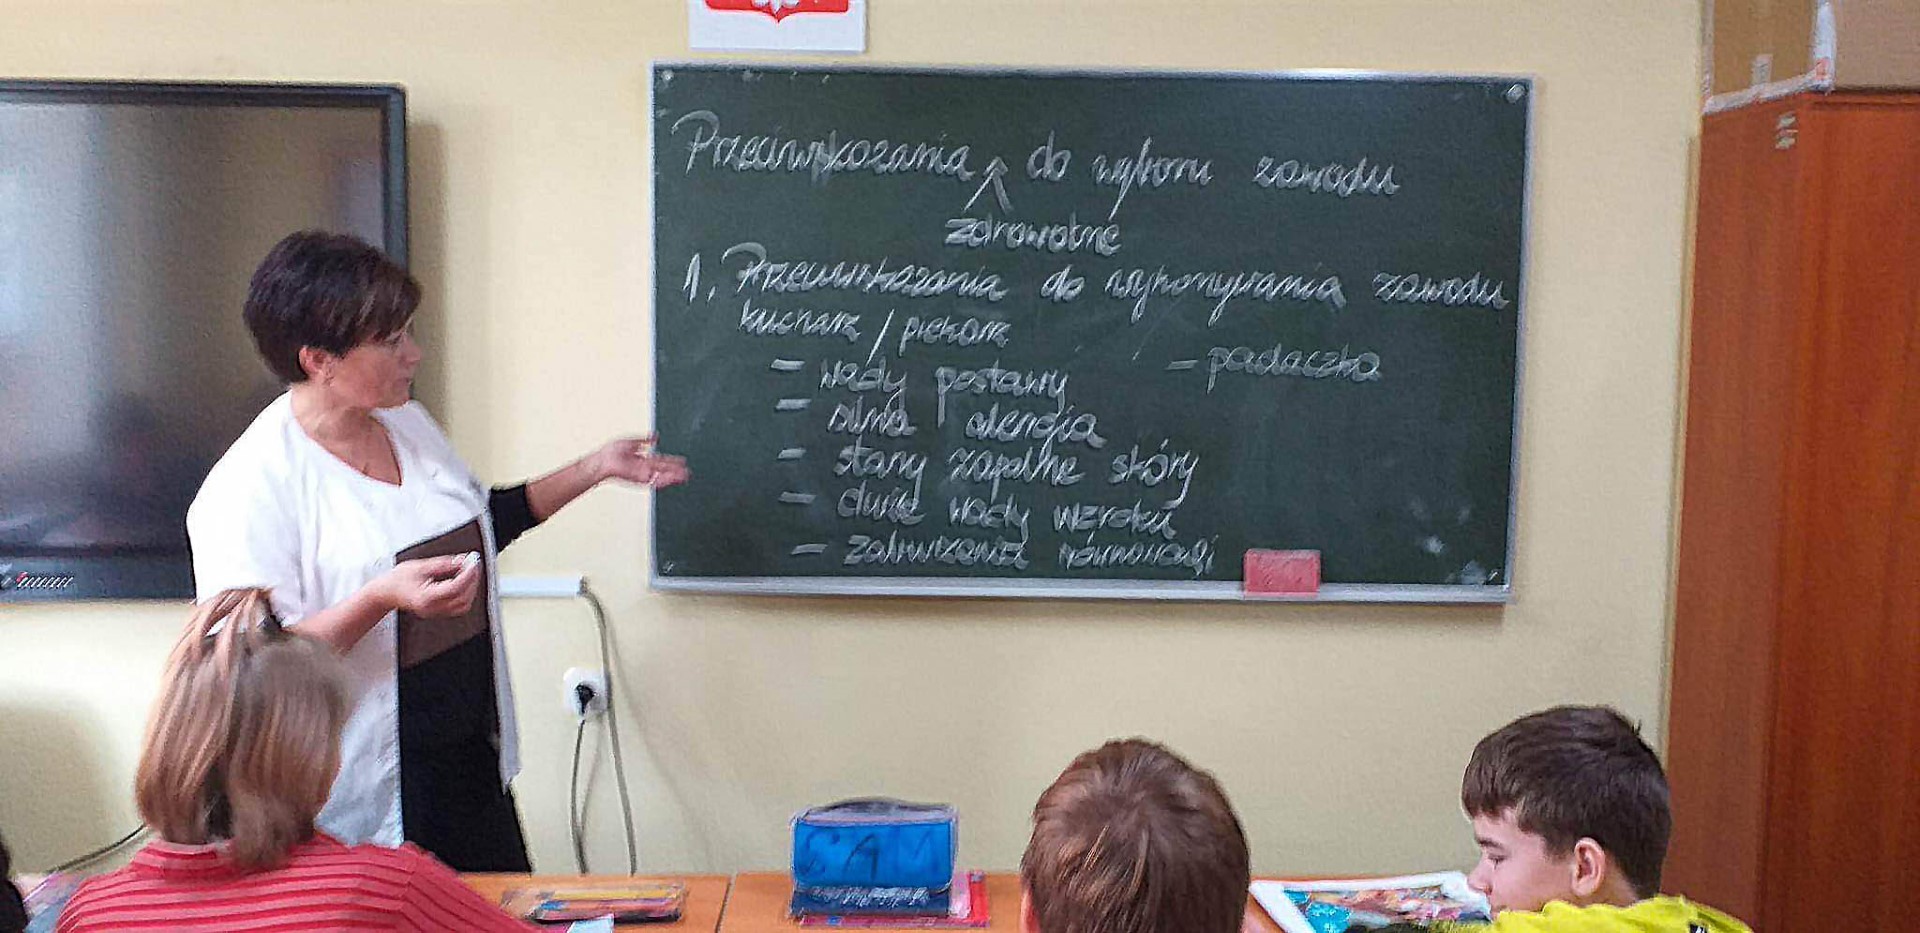 Przeciwskazania do wyboru zawodu
zdrowotne
1. Przeciwskazania do wykonywania zawodu
kucharz / piekarz
- wady postawy
- padaczka
- silna alergia
- stany zapalne skóry
- duże wady wzroku
- zaburzenia równowagi
SAM